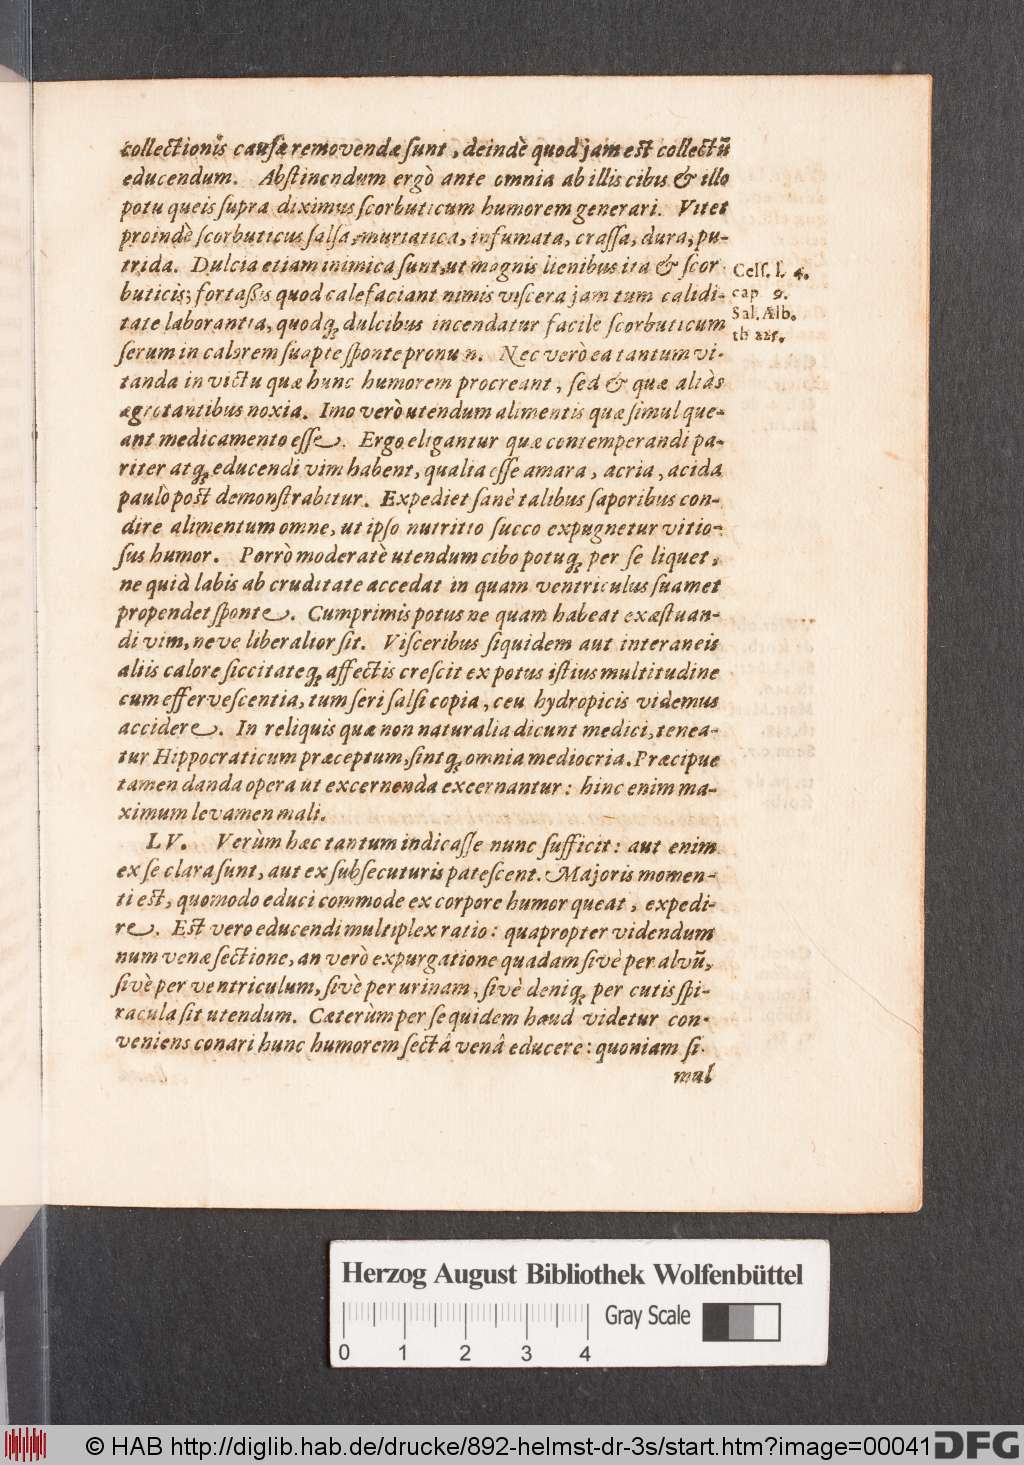 collectionis causæ removendæ sunt, deindè quod jam est collectũ
educendum. Abstinendum ergò ante omnia ab illis cibis & illo
potu queis supra diximus scorbuticum humorem generari. Vitet
proindè scorbuticus salsa, muriatica, infumata, crassa, dura, pu-
trida. Dulcia etiam inimica sunt, ut magnis lienibus ita & scor-
buticis; fortaßis quod calefaciant nimis viscera jam tum calidi-
tate laborantia, quodq; dulcibus incendatur facile scorbuticum
serum in calorem suapte sponte pronum. Nec verò ea tantum vi-
tanda in victu quæ hunc humorem procreant, sed & quæ aliàs
ægrotantibus noxia. Imo verò utendum alimentis quæ simul que-
ant medicamento esse. Ergo eligantur quæ contemperandi pa-
riter atq; educendi vim habent, qualia esse amara, acria, acida
paulò pòst demonstrabitur. Expediet sanè talibus saporibus con-
dire alimentum omne, ut ipso nutritio succo expugnetur vitio-
sus humor. Porrò moderatè utendum cibo potuq; per se liquet,
ne quid labis ab cruditate accedat in quam ventriculus suamet
propendet sponte. Cumprimis potus ne quam habeat exæstuan-
di vim, neve liberalior sit. Visceribus siquidem aut interaneis
aliis calore siccitateq; affectis crescit ex potus istius multitudine
cum effervescentia, tum seri salsi copia, ceu hydropicis videmus
accidere. In reliquis quæ non naturalia dicunt medici, tenea-
tur Hippocraticum præceptum, sintq; omnia mediocria. Præcipue
tamen danda opera ut excernenda excernantur: hinc enim ma-
ximum levamen mali.
LV. Verùm hæc tantum indicasse nunc sufficit: aut enim
ex se clara sunt, aut ex subsecuturis patescent. Majoris momen-
ti est, quomodo educi commode ex corpore humor queat, expedi-
re. Est vero educendi multiplex ratio: quapropter videndum
num venæ sectione, an verò expurgatione quadam sivè per alvũ,
sivè per ventriculum, sivè per urinam, sivè deniq; per cutis spi-
racula sit utendum. Cæterùm per se quidem haud videtur con-
veniens conari hunc humorem sectâ venâ educere: quoniam si-
mul
Cels. l. 4.
cap 9.
Sal. Alb.
th 221.
Herzog August Bibliothek Wolfenbüttel
Gray Scale
0 1 2 3 4
© HAB http://diglib.hab.de/drucke/892-helmst-dr-3s/start.htm?image=00041
DFG